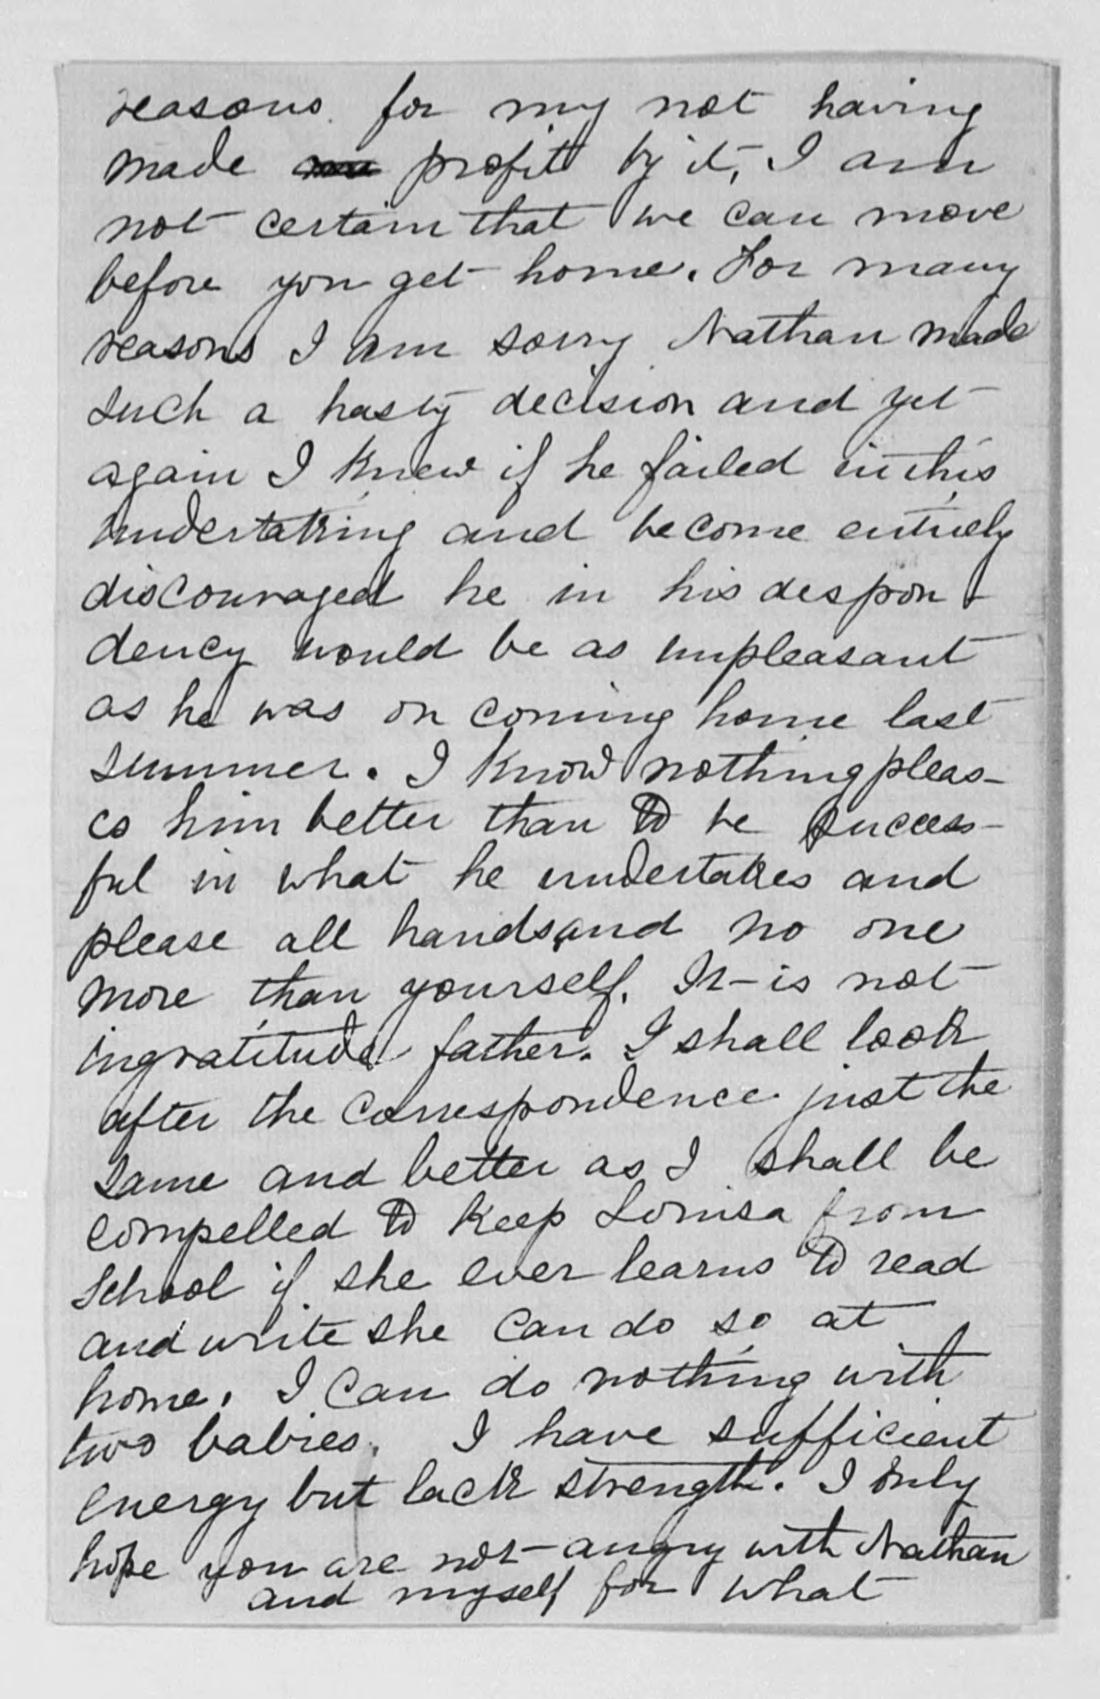 reasons for my not having
made profit by it, I am
not certain that we can move
before you get home. For many
reasons I am sorry Nathan made
such a hasty decision and yet
again I knew if he failed in this
undertaking and become entirely
discouraged he in his despon-
dency would be as unpleasant
as he was on coming home last
summer. I know nothing pleas-
es him better than to be success-
ful in what he undertakes and
please all hands, and no one
more than yourself. It is not
ingratitude father. I shall look
after the correspondence just the
same and better as I shall be
compelled to keep Louisa from
school if she ever learns to read
and write she can do so at
home. I can do nothing with
two babies. I have sufficient
energy but lack strength. I only
hope you are not angry with Nathan
and myself for what